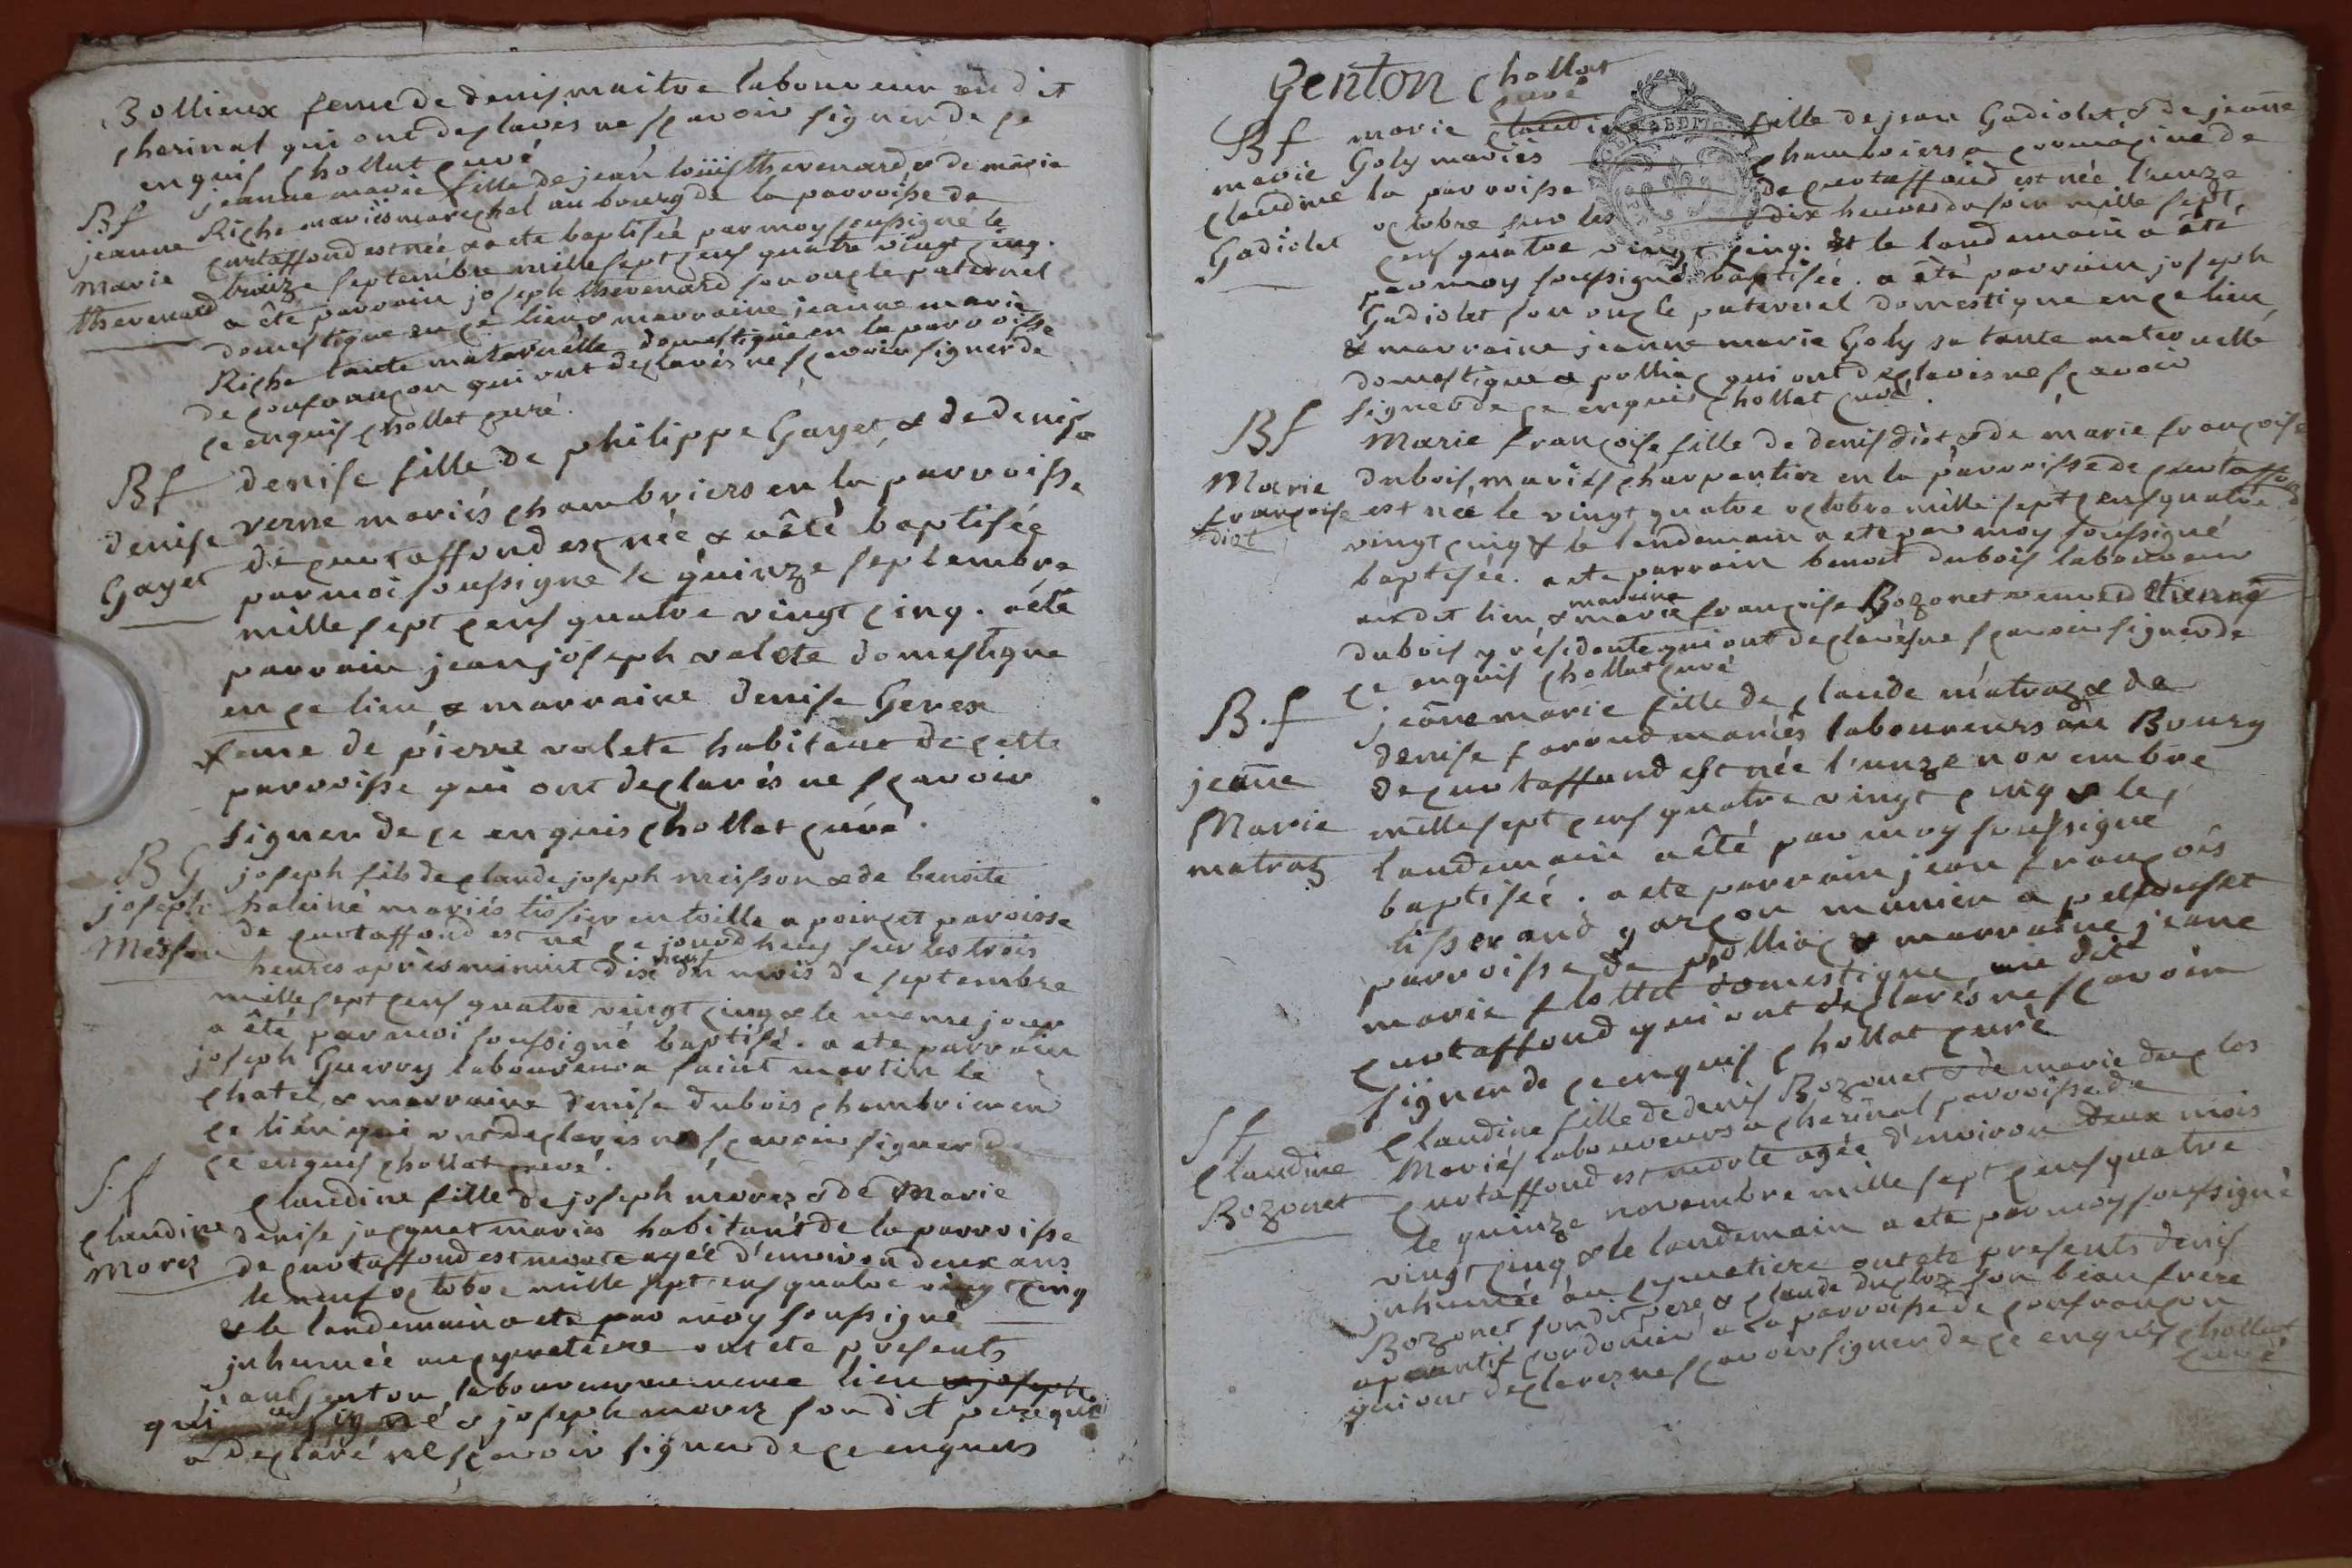 Bollieux feme de denis maitre laboureur audit
cherinal qui ont declarés ne scavoir signer de ce
enquis chollat curé
Bf
jeanne
marie
thevenard
jeanne marie fille de jean louis thevenard & de marie
Riche mariés marechal au bourg de la parroisse de
curtaffond est née & a ete baptisée par moy soussigné le
treize septembre mille sept cens quatre vingt cinq.
a été parrain joseph thevenard son oncle paternel
domestique en ce lieu & marraine jeanne marie
Riche tante maternelle domestique en la parroisse
de confrançon qui ont declarés ne scavoir signer de
ce enquis chollat curé.
Bf
denise
Gayet
denise fille de philippe Gayet & de denise
verne mariés chambriers en la parroisse
de curtaffond est née & a été baptisée
par moi soussigne le quinze septembre
mille sept cens quatre vingt cinq. a été
parrain jean joseph valete domestique
en ce lieu & marraine denise Gerex
feme de pierre valete habitant de cette
parroisse qui ont declarés ne scavoir
signer de ce enquis chollat curé.
BG
joseph
Meisson
joseph fils de claude joseph meisson & de benoite
mariés tissier en toille a poincet paroisse
de curtaffond est né ce jourdheuy sur les trois
heures après minuit dix neuf du mois de septembre
mille sept cens quatre vingt cinq & le meme jour
a été par moi soussigné baptisé. a ete parrain
joseph Guerry laboureur a saint martin le
chatel, & marraine denise dubois chambriere en
ce lieu qui ont declarés ne scavoir signer de
ce enquis chollat curé.
S.f
claudine
Morez
claudine fille de joseph morez & de Marie
denise jacquet mariés habitants de la parroisse
de curtaffond est morte agée d'environ deux ans
le neuf octobre mille sept cens quatre vingt cinq
& le landemain a ete par moy soussigné
inhumée au cymetiere ont ete presents
genton laboureur meme lieu & joseph
qui a signé & joseph morez son dit pere qui
a declaré ne scavoir signer de ce enquis
Genton chollat
curé
Bf
marie
claudine
Gadiolet
marie claudine fille de jean Gadiolet & de jeanne
Goly mariés chambriers a cormagine de
la parroisse de curtaffond est née l'unze
octobre sur les dix heures du soir mille sept
cens quatre vingt cinq. et le landemain a été
par moy soussigné baptisée. a été parrain joseph
Gadiolet son oncle paternel domestique en ce lieu
& marraine jeanne marie Goly sa tante maternelle
domestique a polliac qui ont declarés ne scavoir
signer de ce enquis chollat curé.
Bf
Marie
françoise
diot
Marie françoise fille de denis diot & de marie françoise
dubois, mariés charpentier en la parroisse de curtaffond
est née le vingt quatre octobre mille sept cens quatre
vingt cinq & le landemain a ete par moy soussigné
baptisée. a ete parrain benoit dubois laboureur
audit lieu, & maraine marie françoise Bozonet veuve d'Etienne
dubois y résidente qui ont declarés ne scavoir signer de
ce enquis chollat curé
B.f
jeañe
Marie
matraz
jeañe marie fille de claude matraz & de
denise farout mariés laboureurs au Bourg
de curtaffond est née l'unze novembre
mille sept cens quatre vingt cinq & le
landemain a été par moy soussigné
baptisée. a ete parrain jean françois
tisserand garçon munier a
parroisse de polliac & marraine jeane
marie flottet domestique, au dit
curtaffond qui ont declarés ne scavoir
signer de ce enquis chollat curé
Sf
claudine
Bozonet
claudine fille de denis Bozonet & de marie duclos
Mariés laboureurs a cherinal parroisse de
curtaffond est morte agée d'environ deux mois
le quinze novembre mille sept cens quatre
vingt cinq & le landemain a ete par moy soussigné
inhumée au cymetiere ont ete presents denis
Bozonet son dit pere & claude duclos son beau frere
aprentif cordonier a la parroisse de confrançon
qui ont declarez ne scavoir signer de ce enquis chollat
curé